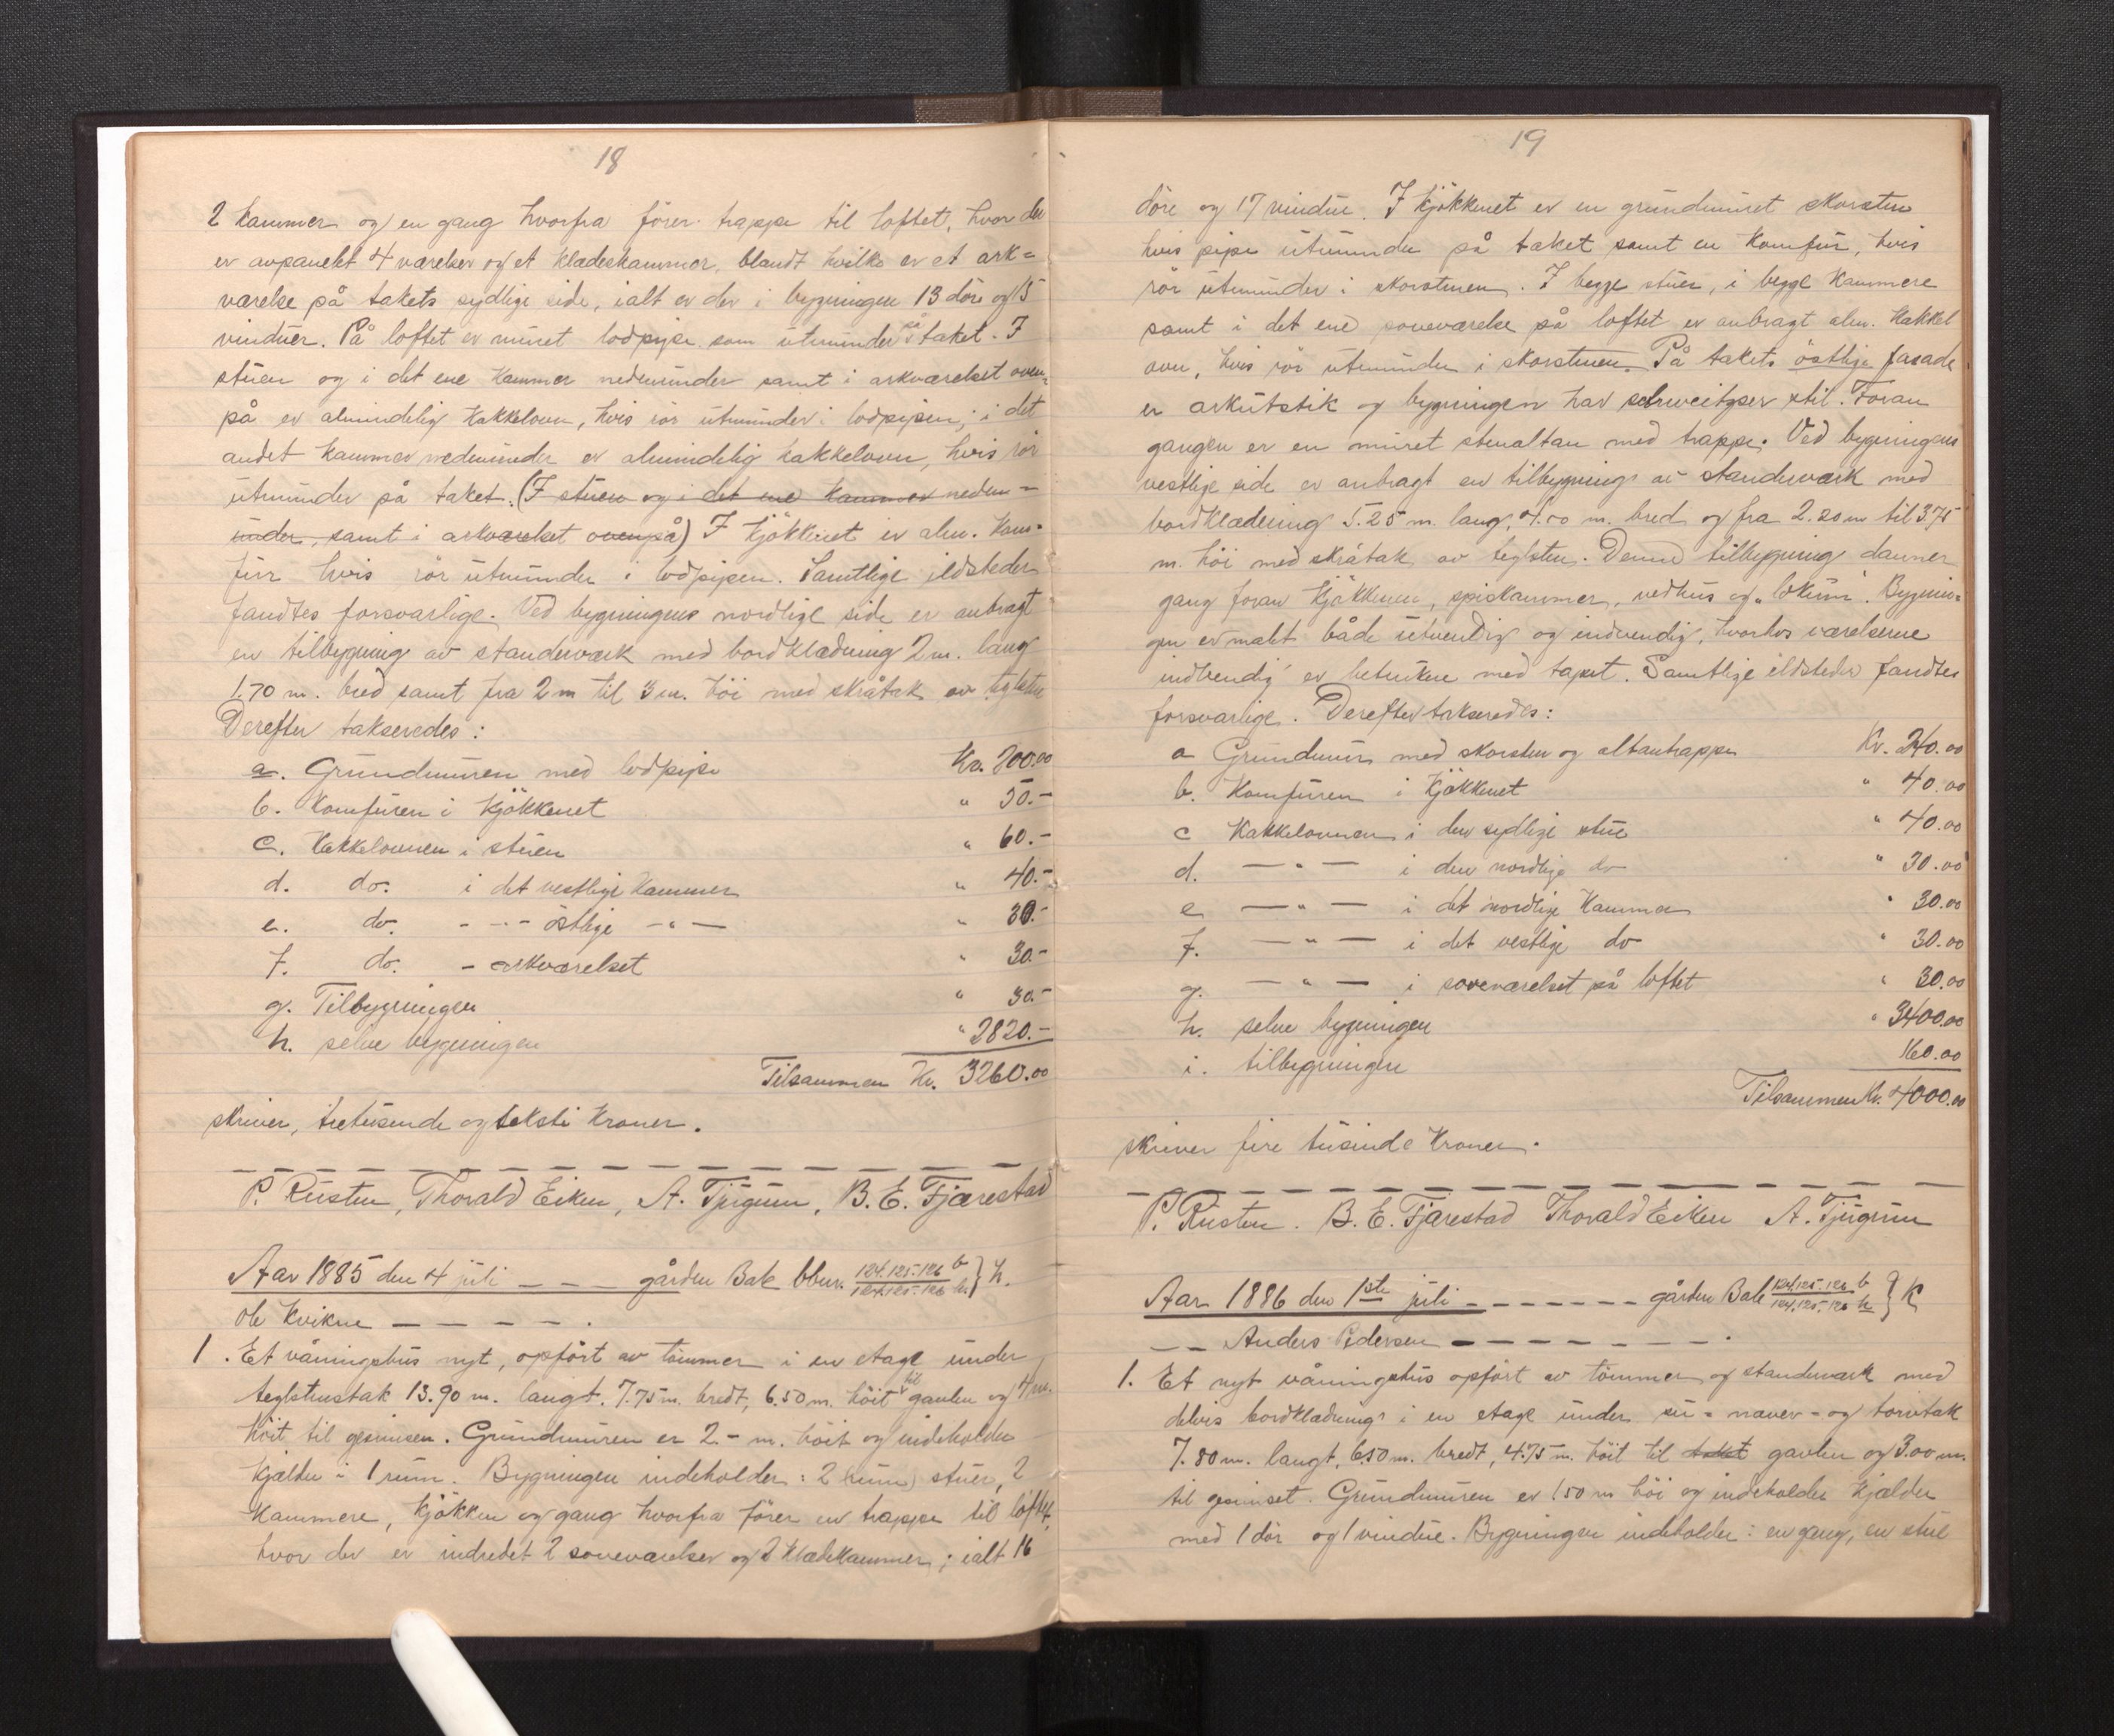 18
2 kammer og en gang hvorfra fører trappe til loftet, hvor der
er avpanelt 4 værelser og et klædeskammer, blandt hvilke er et ark=
værelse på takets sydlige side, ialt er der i bygningen 13 döre og 15
vinduer. På loftet er muret lodpipe som utmunder på taket. I
stuen og i det ene kammer nedenunder samt i arkværelset oven=
på er almindelig kakkelovn, hvis rör utmunder i lodpipen; i det
andet kammer nedenunder er almindelig kakkelovn, hvis rör
utmunder på taket. (I stuen og i det ene kammer neden=
under, samt i arkværelset ovenpå) I kjökkenet er alm. kom=
fur hvis rör utmunder i lodpipen. Samtlige ildsteder
fandtes forsvarlige. Ved bygningens nordlige side er anbragt
en tilbygning av standerværk med bordklædning 2 m. lang
1.70 m. bred samt fra 2 m til 3 m. höi med skråtak av teglsten
Derefter takseredes:
a. Grundmuren med lodpipe Kr. 200.00
b. Komfuren i kjökkenet " 50.-
c. Kakkelovnen i stuen " 60.-
d. do. i det vestlige kammer " 40.-
e. do. - - - östlige - " - " 30.-
f. do. - arkværelset " 30.-
g. Tilbygningen " 30.-
h. selve bygningen " 2820.-
Tilsammen Kr. 3260.00
skriver, tretusende og toksti kroner.
P. Rusten, Thorald Eiken, A. Tjugum, B. E. Fjærestad
Aar 1885 den 4 juli - - - gården Bale lbnr. 124.125.126 b / 124.125.126 h. } h.
Ole Kvikne - - - - - .
1. Et våningshus nyt, opfört av tömmer i en etage under
teglstenstak 13.90 m. langt. 7.75 m. bredt, 6.50 m. höit til gavlen og 4 m.
höit til gesimsen. Grundmuren er 2.- m. höit og indeholder
kjælder i 1 rum. Bygningen indeholder: 2 (rum) stuer, 2
kammere, kjökken og gang hvorfra förer en trappe til loftet,
hvor der er indredet 2 soveværelser og 2 klædekammer; ialt 16
19
döre og 17 vindue. I kjökkenet er en grundmuret skorsten
hvis pipe utmunder på taket samt en komfur, hvis
rör utmunder i skorstenen. I begge stuer, i begge kammere
samt i det ene soveværelse på loftet er anbragt alm. kakkel
ovn, hvis rör utmunder i skorstenen. På takets östlige fasade
er arkutstik og bygningen har schweitzer stil. Foran
gangen er en muret stenaltan med trappe. Ved bygningens
vestlige side er anbragt en tilbygning av standerværk med
bordklædning 5.25 m. lang, 4.00 m. bred og fra 2.20 m til 3.75
m. höi med skråtak av teglsten. Denne tilbygning danner
gang foran kjökkenen, spiskammer, vedhus og "lokum". Bygnin=
gen er malt både utvendig og indvendig, hvorhos værelserne
indvendig er betrukne med tapet. Samtlige ildsteder fandtes
forsvarlige. Derefter takseredes:
a Grundmur med skorsten og altantrappe Kr. 240.00
b. Komfuren i kjökkenet " 40.00
c Kakkelovnen i den sydlige stue " 40.00
d. - " - i den nordlige do " 30.00
e - " - i det nordlige kammer " 30.00
f. - " - i det vestlige do " 30.00
g. - " - i soveværelset på loftet " 30.00
h. selve bygningen " 3400.00
i. tilbygningen 160.00
Tilsammen Kr. 4000.00
skriver fire tusinde kroner.
P. Rusten. B. E. Fjærestad Thorald Eiken A. Tjugum
Aar 1886 den 1ste juli - - - - - - - gården Bale 124.125.126 b / 124.125.126 h } k
- - Anders Pedersen - - - - - - - .
1. Et nyt våningshus opfört av tömmer og standerværk med
delvis bordklædning i en etage under su - næver - og torvtak
7.80 m. langt, 6.50 m. bredt, 4.75 m. höit til taket gavlen og 3.00 m.
til gesimset. Grundmuren er 1.50 m höi og indeholder kjælder
med 1 dör og 1 vindue. Bygningen indeholder: en gang, en stue